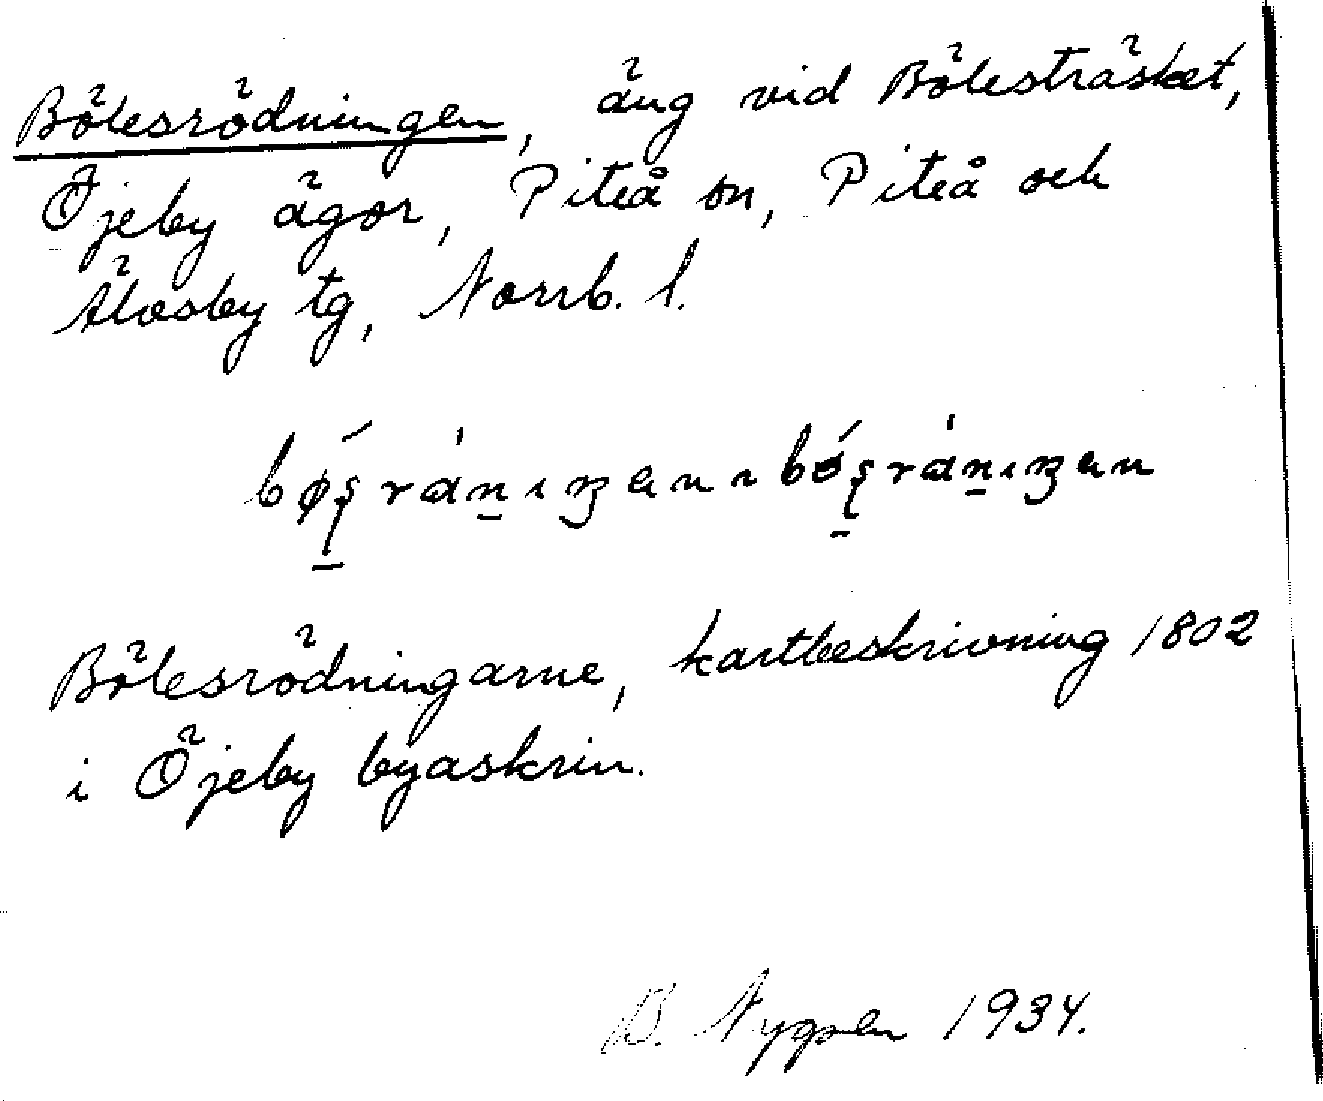 Bölesrödningen, äng vid Bölesträsket,
Öjeby ägor, Piteå sn, Piteå och
Älvsby tg, Norrb. l.
bǿʂrán̠ıŋen ~ bǿʂrán̠ıŋen
Bölesrödningarne, kartbeskrivning 1802
i Öjeby byaskrin.
B. Nygren 1934.